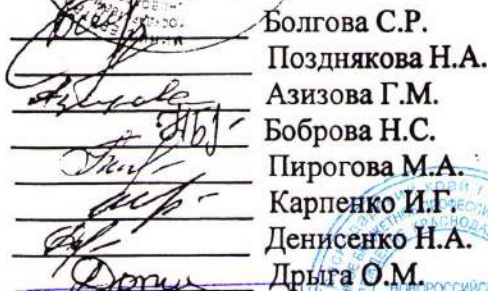 Болгова С.Р.
Позднякова Н.А.
Азизова Г.М.
Боброва Н.С.
Пирогова М.А.
Карпенко И.Г.
Денисенко Н.А.
Дрыга О.М.